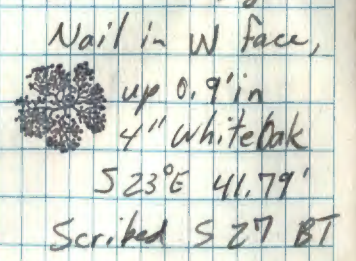 Nail in W face,
up 0.9' in
4" white oak
S 23°E 41.79'
Scribed S 27 BT